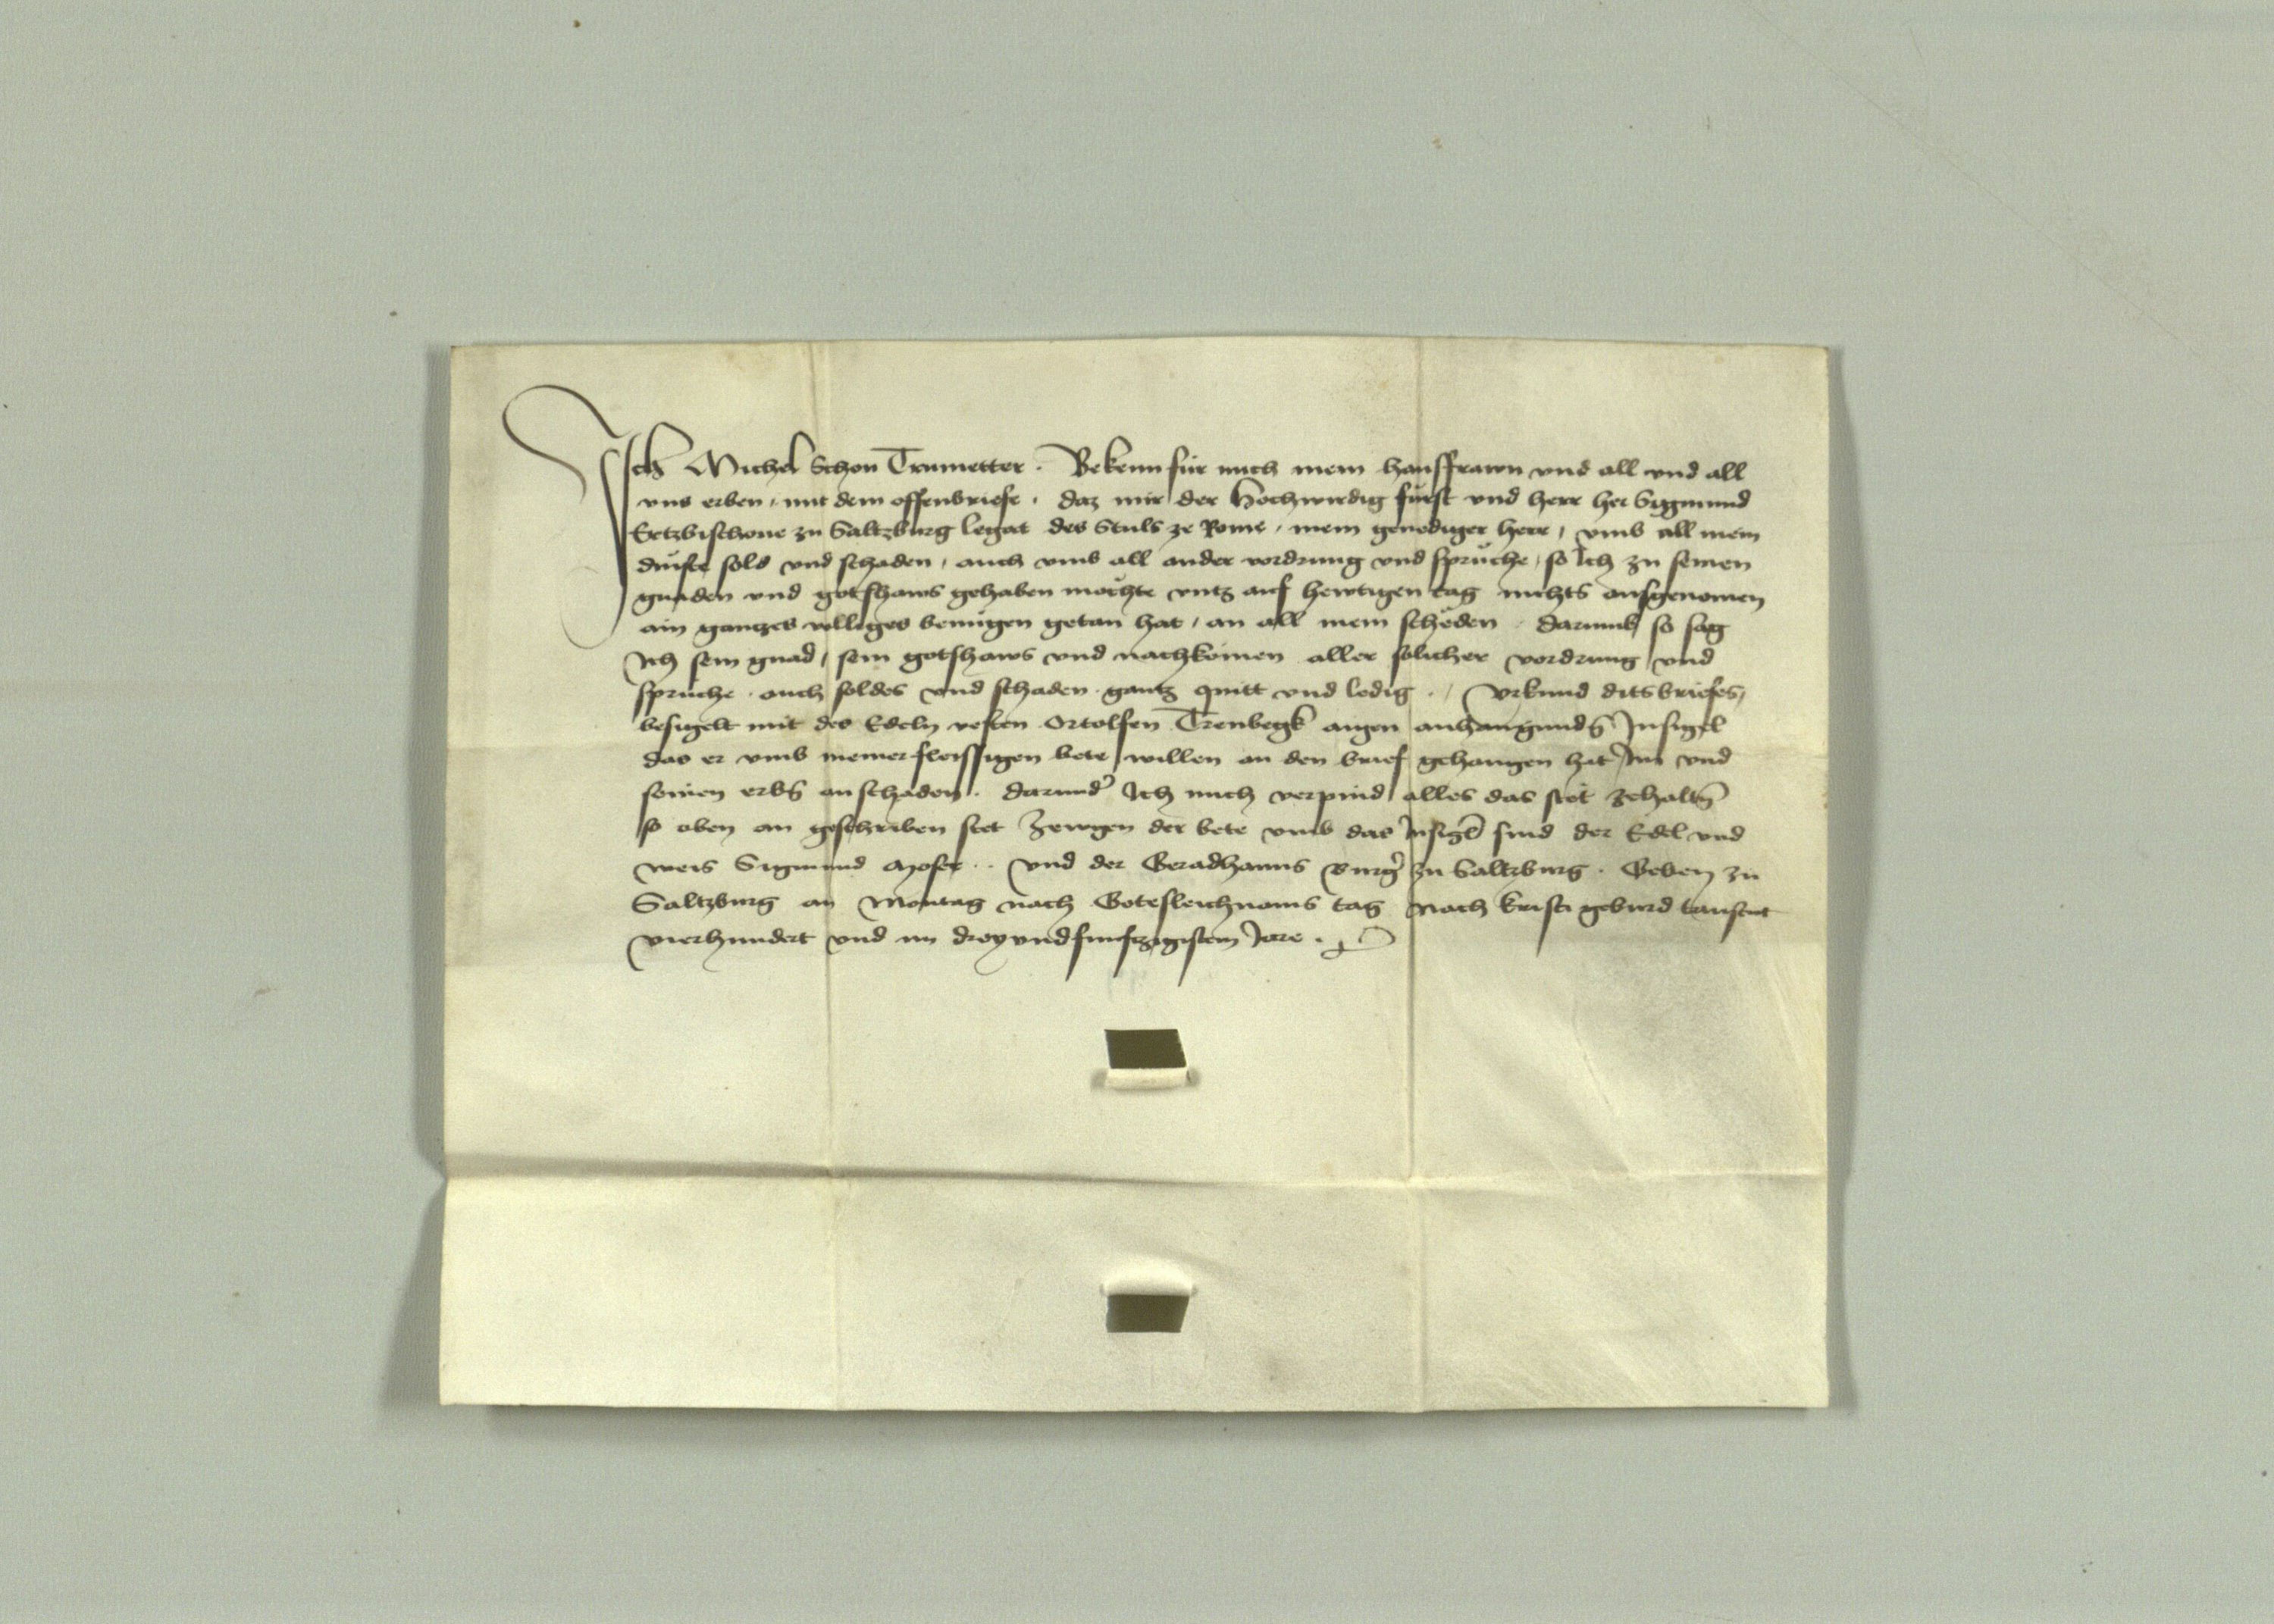 Ich Michel Schon Trumetter. Bekenn für mich mein hausfrawn vnd all vnd all
vns erben, mit dem offenbriefe. daz mir der Hochwirdig fürst vnd herr her Sigmund
Ertzbischoue zu Saltzburg legat des Stuls ze Rome, mein genediger herr, vmb all mein
dinste sold vnd schaden, auch vmb all ander vordrung vnd sprüche, so Ich zu seinen
gnaden vnd gotshaws gehaben möchte vntz auf hewtigen tag nichts ausgenomen
ain gantzes volligs benügen getan hat, an all mein schëden. darumb so sag
Ich sein gnad, sein gotshaws vnd nachkomen aller solicher vordrung vnd
sprüche. auch soldes vnd schaden. gantz quitt vnd ledig. Vrkund ditsbriefes,
besigelt mit des Edeln vesten Ortolfen Trenbegk aigen anhangunds̄ Insigel
das er vmb meiner fleissigen bete willen an den brief gehangen hat, Im vnd
seinen erbs̄ an schaden. darunder Ich mich verpind alles das stët zehaltn̄
so oben an geschriben stet Zewgen der bete vmb das Insigl̄ sind der Edel vnd
weis Sigmund Moser.. vnd der Geradhanns Burger zu Saltzburg. Geben zu
Saltzburg an Montag nach Gotesleichnams tag Nach kristi geburd tausent
vierhundert vnd im dreyvndfunfzigistem Jare.